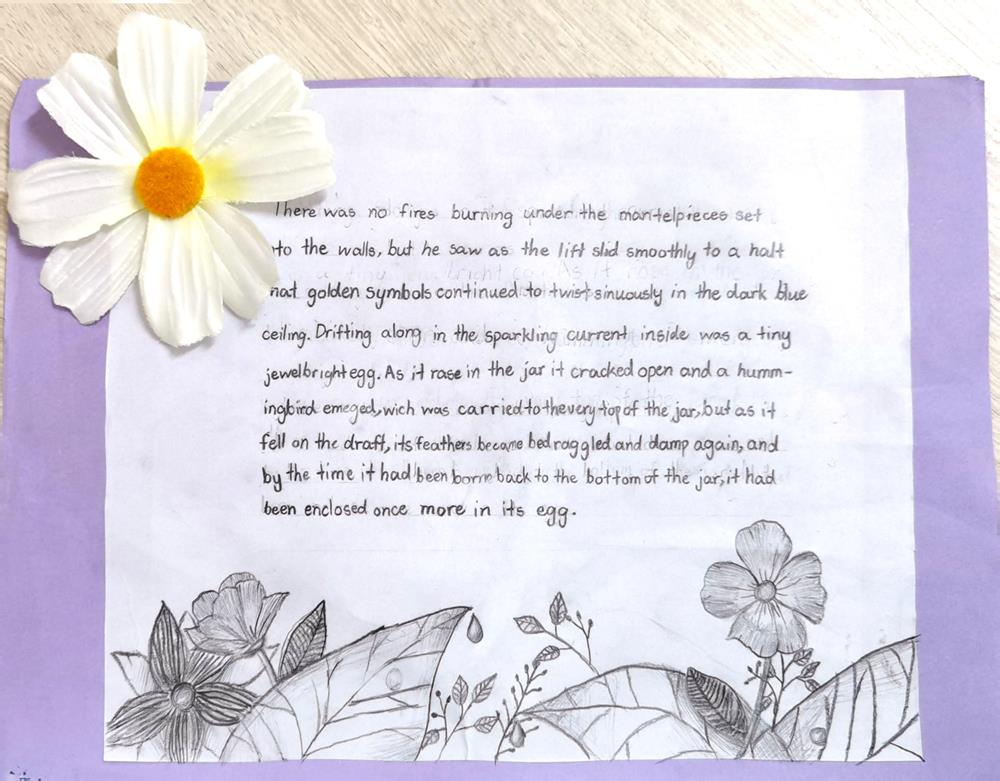 There was no fires burning under the mantelpieces set
to the walls, but he saw as the lift slid smoothly to a halt
hat golden symbols continued to twist sinuously in the dark blue
ceiling. Drifting along in the sparkling current inside was a tiny
jewelbright egg. As it rase in the jar it cracked open and a humm-
ingbird emeged, wich was carried to the very top of the jar, but as it
fell on the draft, its feathers became bedraggled and damp again, and
by the time it had been borne back to the bottom of the jar, it had
been enclosed once more in its egg.